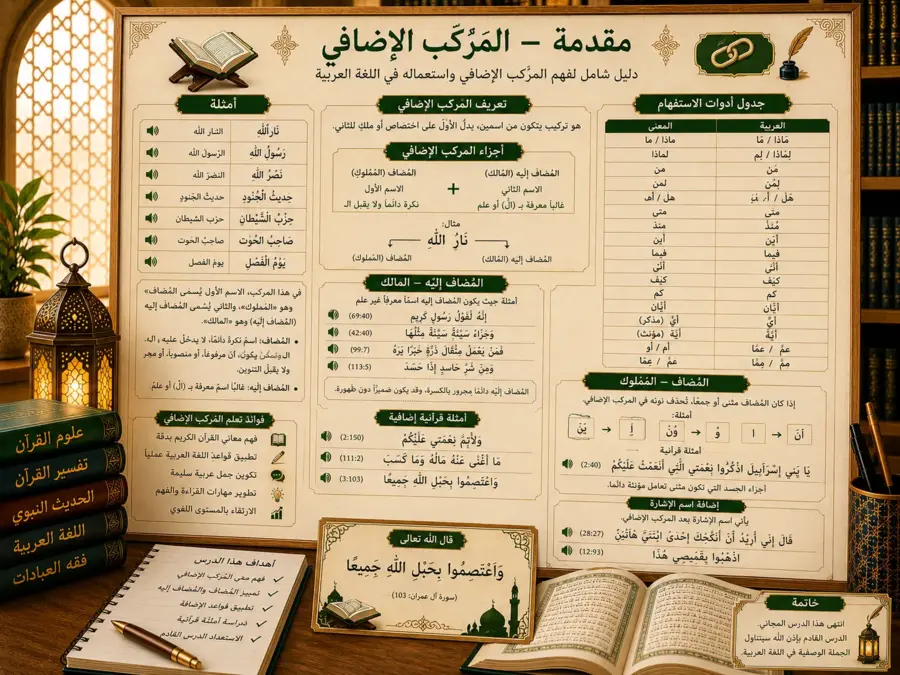 مقدمة – المَرُكّب الإضافي
دليل شامل لفهم المركّب الإضافي واستعماله في اللغة العربية
جدول أدوات الاستفهام
العربية
المعنى
مَاذَا / مَا
ماذا / ما
لِمَاذَا / لِم
لماذا
مَن
من
لِمُن
لمن
هَلْ /
هل / أهـ
متى
متى
مُنذُ
منذ
أيْن
أين
فيما
فيما
أنّى
أنّى
كيْف
كيْف
كم
كم
أيَّان
أيَّان
أيُّ
أيُّ (مذكر)
أيَّة
أيَّة (مؤنث)
عمُّ / عمَّا
أم / أو
عمُّ / ممَّا
عمُ / عمَّا
المُضاف – المُمْلوك
إذا كان المُضاف مثنى أو جمعًا، تُحذف نونه في المركب الإضافي.
أمثلة:
انَ → ا → وْ → وُنْ → → يْنَ
أمثلة قرآنية
يَا بَنِي إِسْرَآءِيلَ اذْكُرُوا نِعْمَتِي الَّتِي أَنْعَمْتُ عَلَيْكُمْ (2:40)
أجزاء الجسد التي تكون مثنى تعامل مؤنثة دائما.
إضافة اسم الإشارة
يأتي اسم الإشارة بعد المركب الإضافي.
قَالَ إِنِّي أُرِيدُ أَنْ أُنْكِحَكَ إِحْدَى ابْنَتَيَّ هَاتَيْنِ (28:27)
اذْهَبُوا بِقَمِيصِي هَٰذَا (12:93)
تعريف المركب الإضافي
هو تركيب يتكون من اسمين، يدلّ الأول على اختصاص أو ملكٍ للثاني.
أجزاء المركب الإضافي
المُضاف إليه (المالك)
الاسم الثاني
غالبا معرفة بـ (الْ) أو علم
+
المُضاف (المُملوك)
الاسم الأول
نكرة دائمًا ولا يقبل الـ
مثال:
نَارُ اللّٰهِ
المُضاف إليه (المالك)
المُضاف (المملوك)
المُضاف إليْه – المالك
أمثلة حيث يكون المُضاف إليه اسمًا معرفًا غير علم
إنَّهُ لَقَوْلُ رَسُولٍ كَرِيمٍ (69:40)
وَجَزَاءُ سَيِّئَةٍ سَيِّئَةٌ مِثْلُهَا (42:40)
فَمَنْ يَعْمَلْ مِثْقَالَ ذَرَّةٍ خَيْرًا يَرَهُ (99:7)
وَمِنْ شَرِّ حَاسِدٍ إِذَا حَسَدَ (113:5)
المُضاف إليْه دائمًا مجرور بالكسرة، وقد يكون ضميرًا دون ظهورة.
أمثلة قرآنية إضافية
وَلِأُتِمَّ نِعْمَتِي عَلَيْكُمْ (2:150)
مَا أَغْنَى عَنْهُ مَالُهُ وَمَا كَسَبَ (111:2)
وَاعْتَصِمُوا بِحَبْلِ اللّٰهِ جَمِيعًا (3:103)
أمثلة
نَارُ اللّٰهِ
النار الله
رَسُولُ اللّٰهِ
الرّسول الله
نَصْرُ اللّٰهِ
النصرَ الله
حديثُ الْجُنودِ
حديث الجنود
حِزْبُ الشَّيْطَانِ
حزب الشيطان
صَاحِبُ الحُوت
صاحبُ الحوت
يَوْمُ الْفَصْلِ
يوم الفصل
في هذا المركب، الاسم الأول يُسمى المُضاف»
وهو «المملوك»، والثاني يُسمى المُضاف إليه
(المُضاف إليه) وهو «المالك».
• المُضاف: اسم نكرة دائمًا، لا يدخل عليه الـ،
أنْ مرفوعًا، أو منصوبا، أو مجر
ولا يقبل التنوين.
• المُضاف إليه: غالبًا اسم معرفة بـ (الْ) أو علمٌ.
فوائد تعلم المركب الإضافي
فهم معاني القرآن الكريم بدقة
تطبيق قواعد اللغة العربية عمليًا
تكوين جمل عربية سليمة
تطوير مهارات القراءة والفهم
الارتقاء بالمستوى اللغوي
علوم القرآن
تفسير القرآن
الحديث النبوي
اللغة العربية
فقه العبادات
أهداف هذا الدرس
فهم معنى المُركب الإضافي ✓
تمييز المُضاف والمُضاف إليه ✓
تطبيق قواعد الإضافة ✓
دراسة أمثلة قرآنية ✓
الاستعداد الدرس القادم ✓
قال الله تعالى
وَاعْتَصِمُوا بِحَبْلِ اللّٰهِ جَمِيعًا
(سورة آل عمران: 103)
خاتمة
انتهى هذا الدرس المجاني.
الدرس القادم بإذن الله سيتناول
الجملة الوصفية في اللغة العربية.